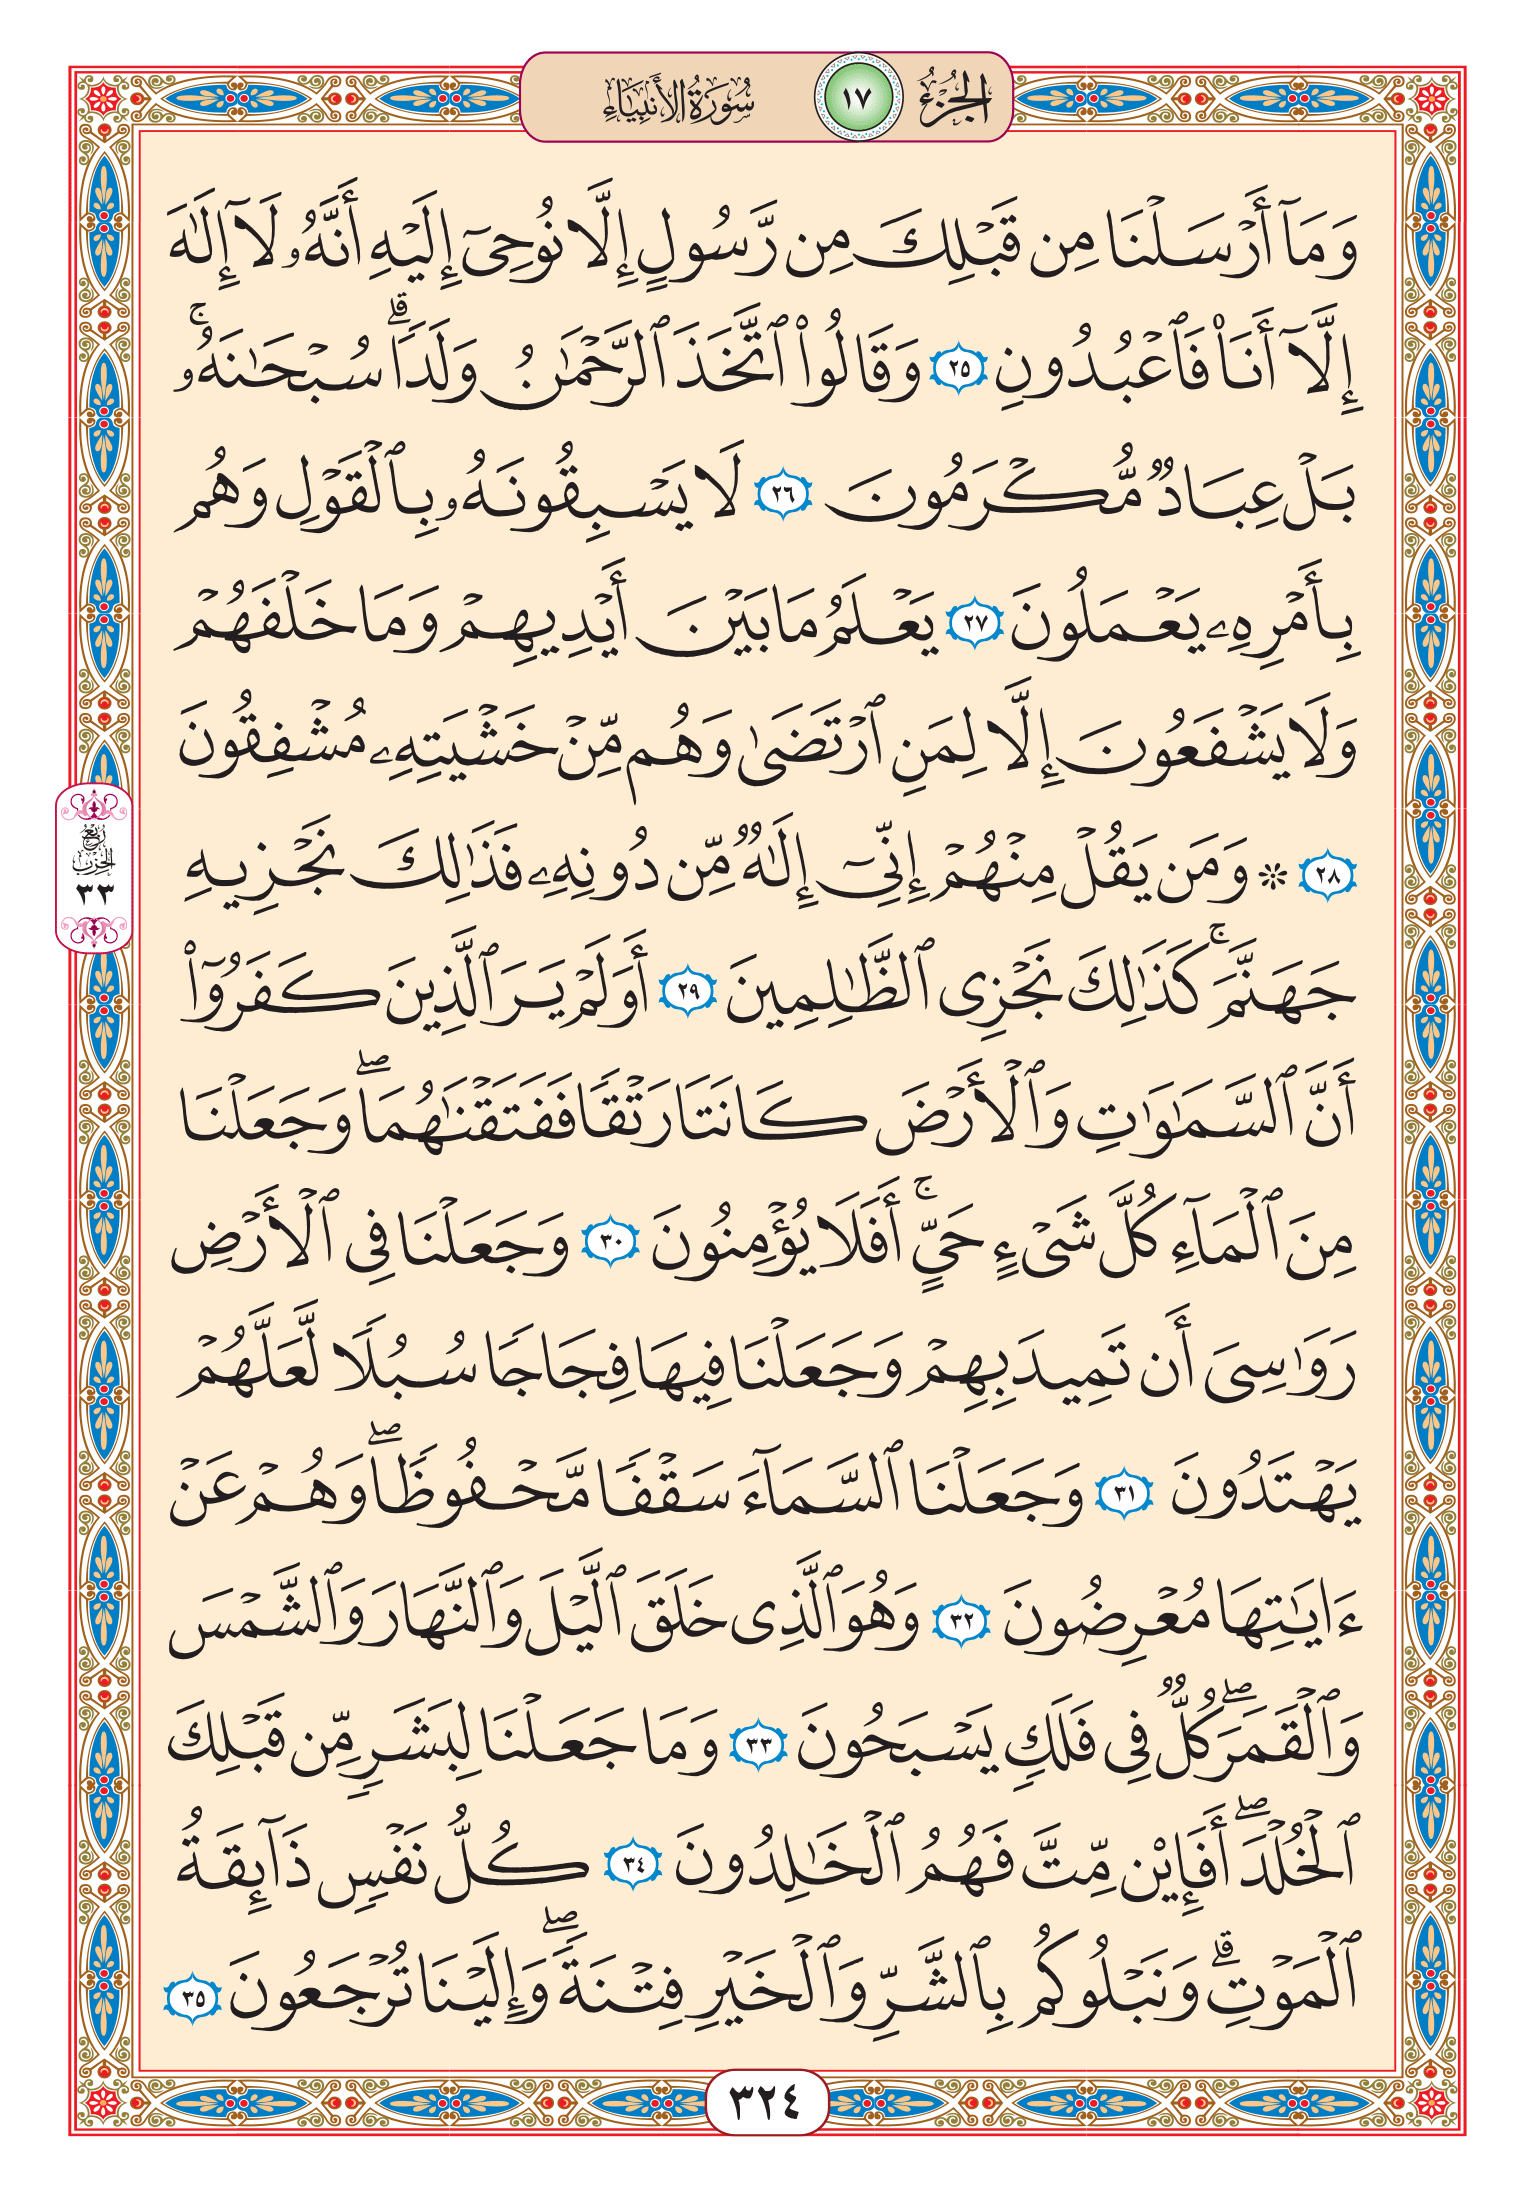 الجزء ١٧ سورة الأنبياء
وَمَآ أَرْسَلْنَا مِن قَبْلِكَ مِن رَّسُولٍ إِلَّا نُوحِىٓ إِلَيْهِ أَنَّهُۥ لَآ إِلَٰهَ
إِلَّآ أَنَا۠ فَٱعْبُدُونِ ٢٥ وَقَالُوا۟ ٱتَّخَذَ ٱلرَّحْمَٰنُ وَلَدًا ۗ سُبْحَٰنَهُۥ ۚ
بَلْ عِبَادٌ مُّكْرَمُونَ ٢٦ لَا يَسْبِقُونَهُۥ بِٱلْقَوْلِ وَهُم
بِأَمْرِهِۦ يَعْمَلُونَ ٢٧ يَعْلَمُ مَا بَيْنَ أَيْدِيهِمْ وَمَا خَلْفَهُمْ
وَلَا يَشْفَعُونَ إِلَّا لِمَنِ ٱرْتَضَىٰ وَهُم مِّنْ خَشْيَتِهِۦ مُشْفِقُونَ
٢٨ ۞ وَمَن يَقُلْ مِنْهُمْ إِنِّىٓ إِلَٰهٌ مِّن دُونِهِۦ فَذَٰلِكَ نَجْزِيهِ
ربع الحزب ٣٣
جَهَنَّمَ ۚ كَذَٰلِكَ نَجْزِى ٱلظَّٰلِمِينَ ٢٩ أَوَلَمْ يَرَ ٱلَّذِينَ كَفَرُوٓا۟
أَنَّ ٱلسَّمَٰوَٰتِ وَٱلْأَرْضَ كَانَتَا رَتْقًا فَفَتَقْنَٰهُمَا ۖ وَجَعَلْنَا
مِنَ ٱلْمَآءِ كُلَّ شَىْءٍ حَىٍّ ۚ أَفَلَا يُؤْمِنُونَ ٣٠ وَجَعَلْنَا فِى ٱلْأَرْضِ
رَوَٰسِىَ أَن تَمِيدَ بِهِمْ وَجَعَلْنَا فِيهَا فِجَاجًا سُبُلًا لَّعَلَّهُمْ
يَهْتَدُونَ ٣١ وَجَعَلْنَا ٱلسَّمَآءَ سَقْفًا مَّحْفُوظًا ۖ وَهُمْ عَنْ
ءَايَٰتِهَا مُعْرِضُونَ ٣٢ وَهُوَ ٱلَّذِى خَلَقَ ٱلَّيْلَ وَٱلنَّهَارَ وَٱلشَّمْسَ
وَٱلْقَمَرَ ۖ كُلٌّ فِى فَلَكٍ يَسْبَحُونَ ٣٣ وَمَا جَعَلْنَا لِبَشَرٍ مِّن قَبْلِكَ
ٱلْخُلْدَ ۖ أَفَإِي۟ن مِّتَّ فَهُمُ ٱلْخَٰلِدُونَ ٣٤ كُلُّ نَفْسٍ ذَآئِقَةُ
ٱلْمَوْتِ ۗ وَنَبْلُوكُم بِٱلشَّرِّ وَٱلْخَيْرِ فِتْنَةً ۖ وَإِلَيْنَا تُرْجَعُونَ ٣٥
٣٢٤